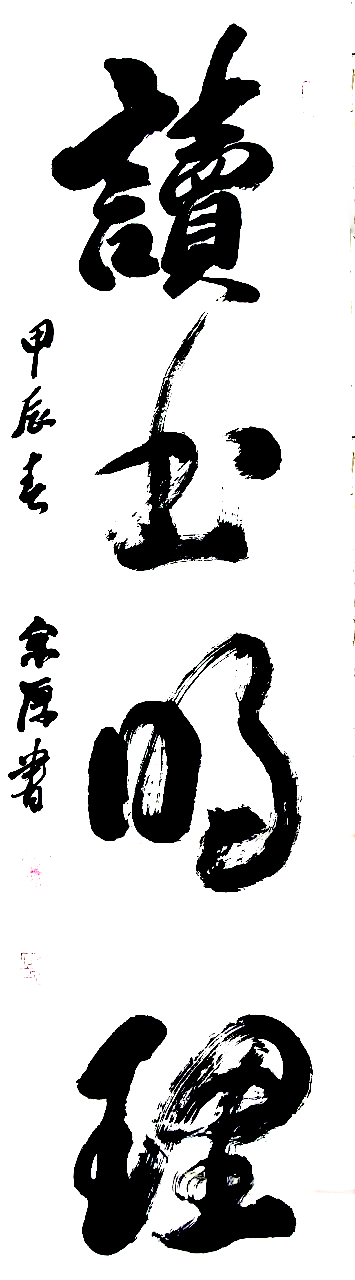 讀书明理
甲辰春
宗源書